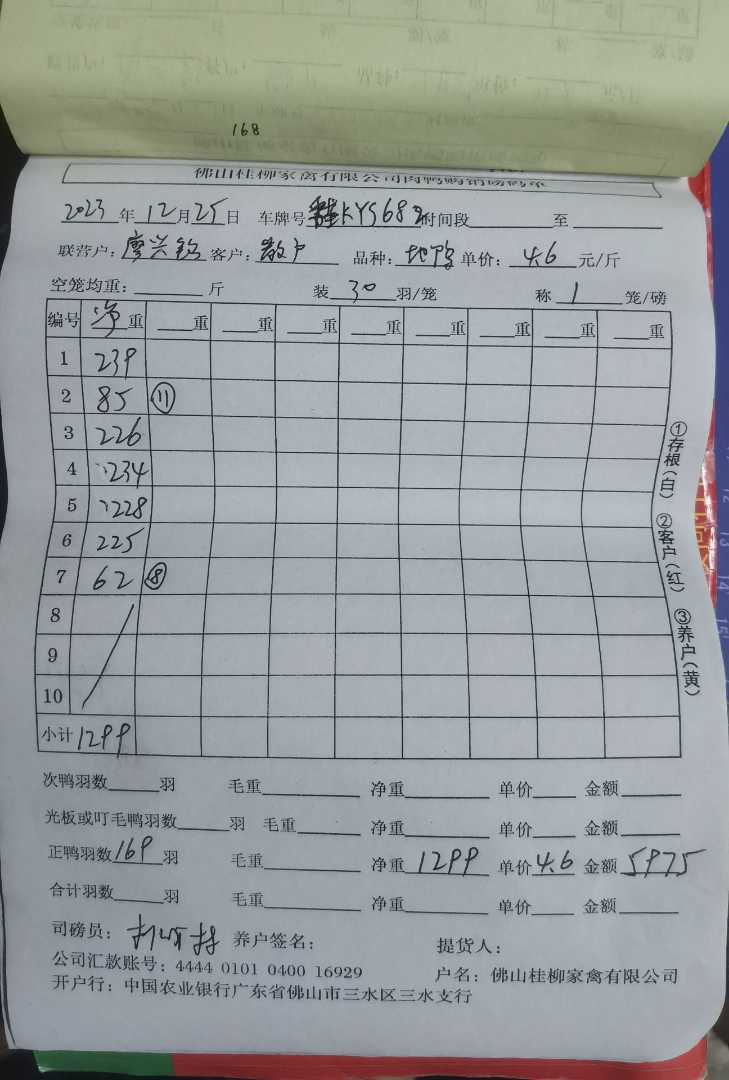 168
佛山桂柳家禽有限公司肉鸭鹅销磅码单
2023 年 12 月 25 日 车牌号 桂KYS68 时间段 至
联营户: 廖兴 客户: 散户 品种: 地鸭 单价: 4.6 元/斤
空笼均重: 斤 装 30 羽/笼 称 1 笼/磅
编号 净重 重 重 重 重 重 重 重 重
1 239
2 85 ⑪
3 226
4 234
5 228
6 225
7 62 ⑧
8
9
10
小计 1299
①存根(白) ②客户(红) ③养户(黄)
次鸭羽数 羽 毛重 净重 单价 金额
光板或叮毛鸭羽数 羽 毛重 净重 单价 金额
正鸭羽数 169 羽 毛重 净重 1299 单价 4.6 金额 5975
合计羽数 羽 毛重 净重 单价 金额
司磅员: 养户签名: 提货人:
公司汇款账号: 4444 0101 0400 16929 户名: 佛山桂柳家禽有限公司
开户行: 中国农业银行广东省佛山市三水区三水支行